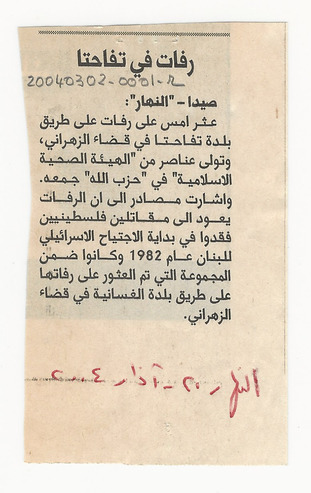 رفات في تفاحتا
20040302-0001-R
صيدا – "النهار":
عثر امس على رفات على طريق
بلدة تفاحتا في قضاء الزهراني،
وتولى عناصر من "الهيئة الصحية
الاسلامية" في "حزب الله" جمعه.
واشارت مصادر الى ان الرفات
يعود الى مقاتلين فلسطينيين
فقدوا في بداية الاجتياح الاسرائيلي
للبنان عام 1982 وكانوا ضمن
المجموعة التي تم العثور على رفاتها
على طريق بلدة الغسانية في قضاء
الزهراني.
آذار ٢٠٠٤